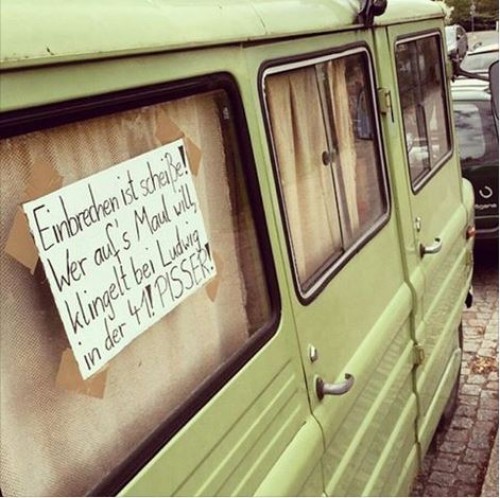 Einbrechen ist scheiße!
Wer auf's Maul will,
klingelt bei Ludwig
in der 41! PISSER!